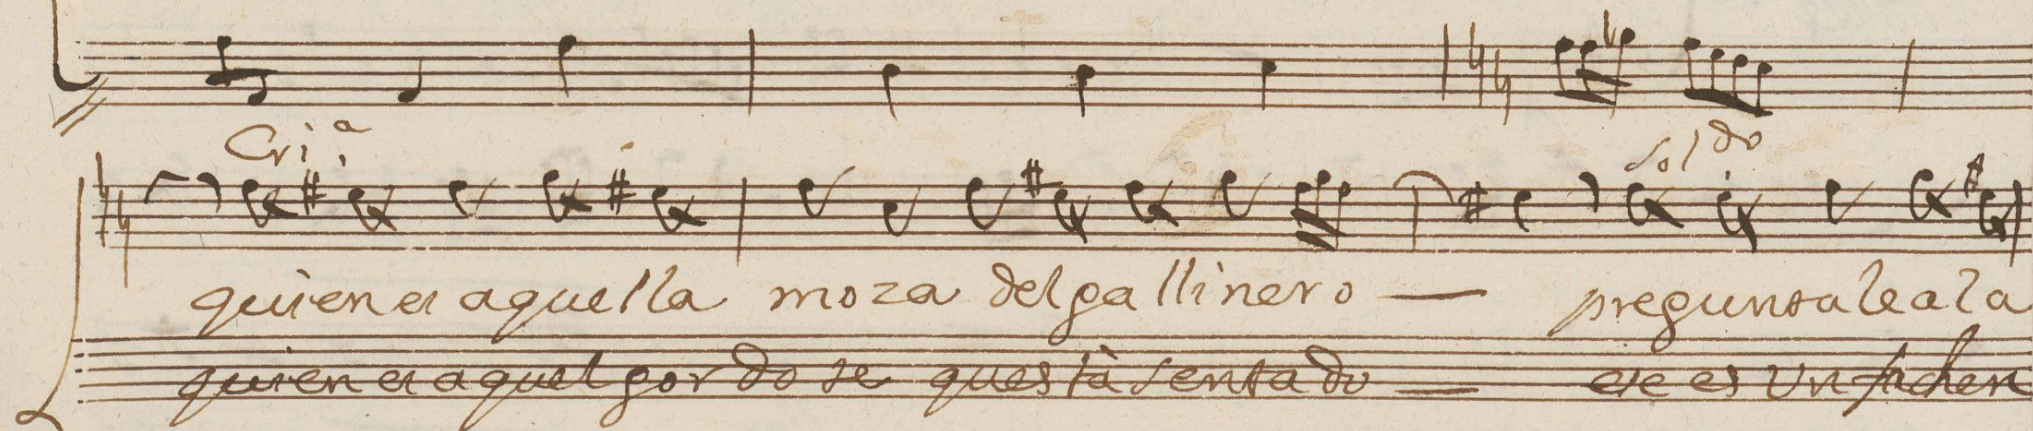 Cri.ª
Sol.do
quien es aquella moza del gallinero — preguntale a la
quien es aquel gordo se questà sentado — ese es un fachen